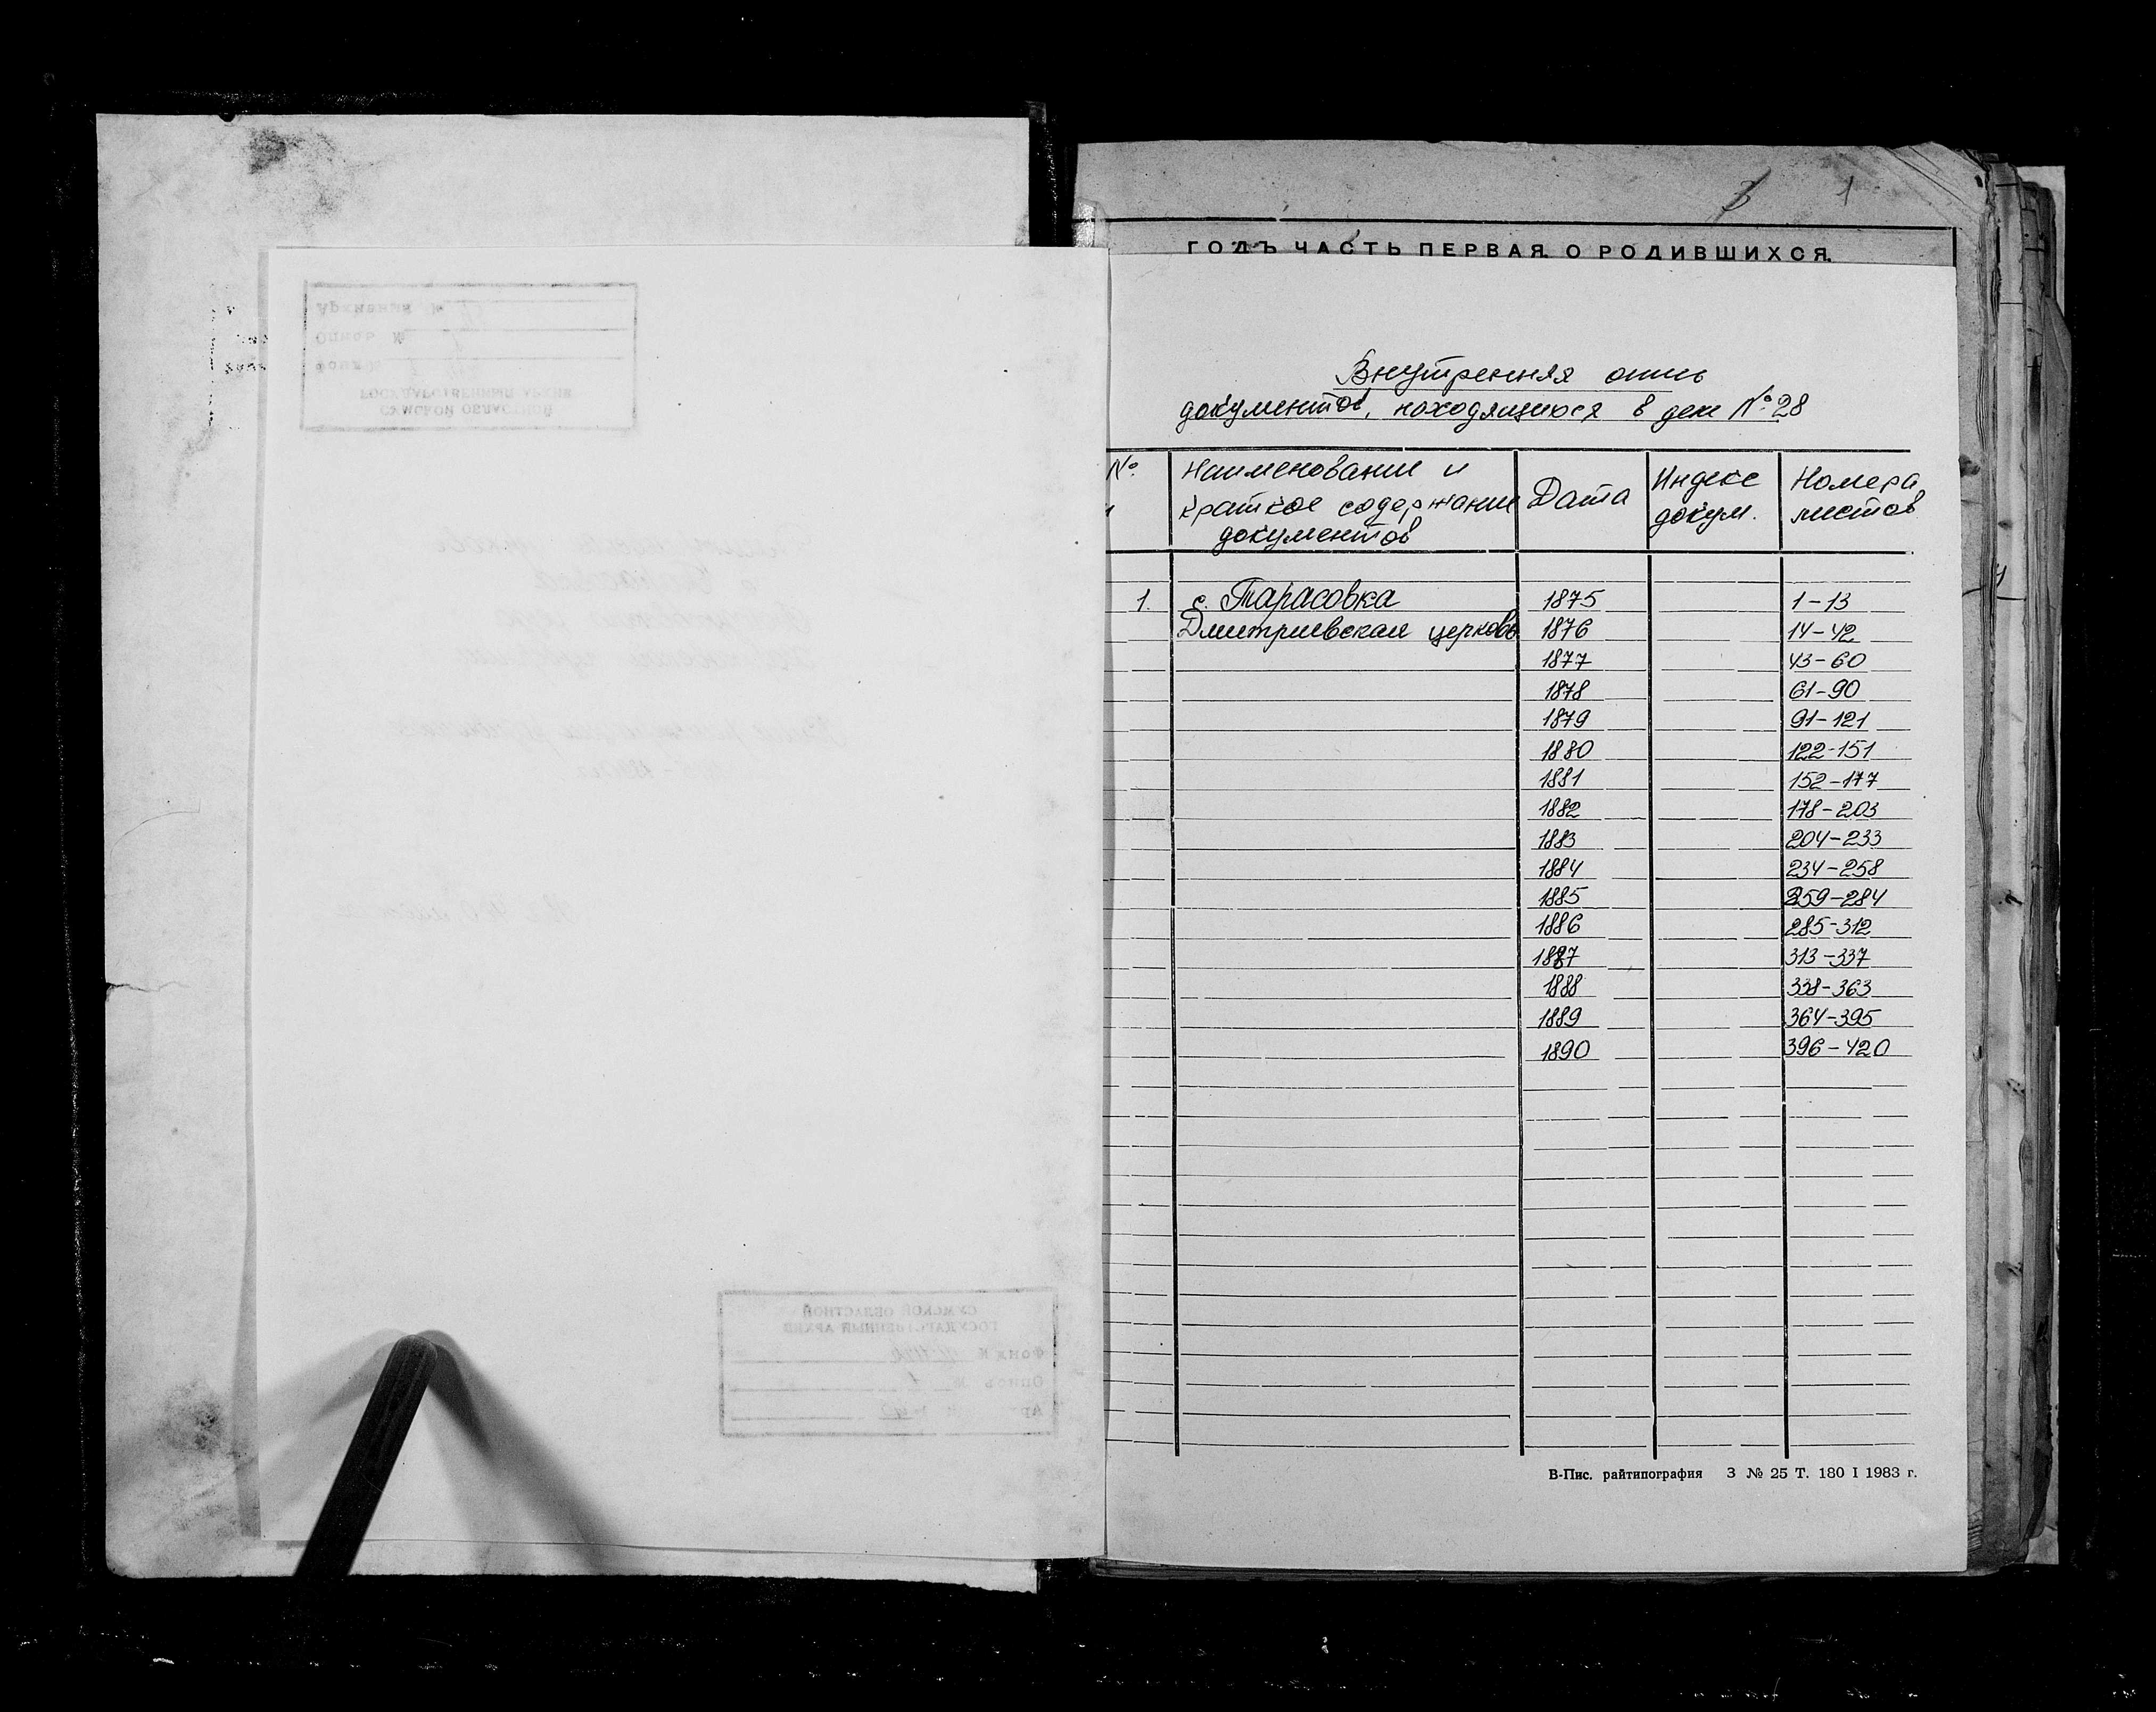 1
ГОДЪ ЧАСТЬ ПЕРВАЯ. О РОДИВШИХСЯ.
Внутренняя опись
документов, находящихся в деле № 28
№ Наименование и краткое содержание документов Дата Индекс докум. Номера листов
1. с. Тарасовка 1875 1-13
Дмитриевская церковь 1876 14-42
1877 43-60
1878 61-90
1879 91-121
1880 122-151
1881 152-177
1882 178-203
1883 204-233
1884 234-258
1885 259-284
1886 285-312
1887 313-337
1888 338-363
1889 364-395
1890 396-420
В-Пис. райтипография З № 25 Т. 180 I 1983 г.
Архивный №
Опись №
Фонд
ГОСУДАРСТВЕННЫЙ АРХИВ
СУМСКОЙ ОБЛАСТНОЙ
СУМСКОЙ ОБЛАСТНОЙ
ГОСУДАРСТВЕННЫЙ АРХИВ
Фонд №
Опись № 1